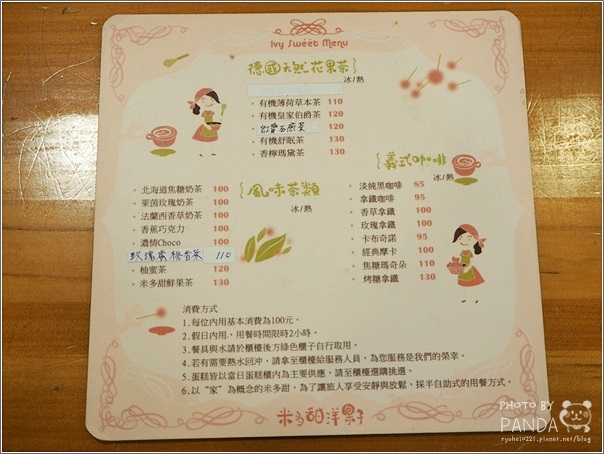 Ivy Sweet Menu
德國天然花果茶
冰/熱
・有機薄荷草本茶 110
・有機皇家伯爵茶 120
120
・有機舒眠茶 130
・香檸瑪黛茶 130
風味茶類
冰/熱
・北海道焦糖奶茶 100
・萊茵玫瑰奶茶 100
・法蘭西香草奶茶 100
・香蕉巧克力 100
・濃情Choco 100
玫瑰蜜桃香茶 110
・柚蜜茶 120
・米多甜鮮果茶 130
義式咖啡
冰/熱
・淡純黑咖啡 85
・拿鐵咖啡 95
・香草拿鐵 100
・玫瑰拿鐵 100
・卡布奇諾 95
・經典摩卡 100
・焦糖瑪奇朵 110
・烤糖拿鐵 130
消費方式
1.每位內用基本消費為100元。
2.假日內用,用餐時間限時2小時。
3.餐具與水請於櫃檯後方綠色櫃子自行取用。
4.若有需要熱水回沖,請拿至櫃檯給服務人員,為您服務是我們的榮幸。
5.蛋糕皆以當日蛋糕櫃內為主要供應,請至櫃檯選購挑選。
6.以“家”為概念的米多甜,為了讓旅人享受安靜與放鬆,採半自助式的用餐方式.
米多甜洋菓子
PHOTO BY
PANDA
ryohei0221.pixnet.net/blog